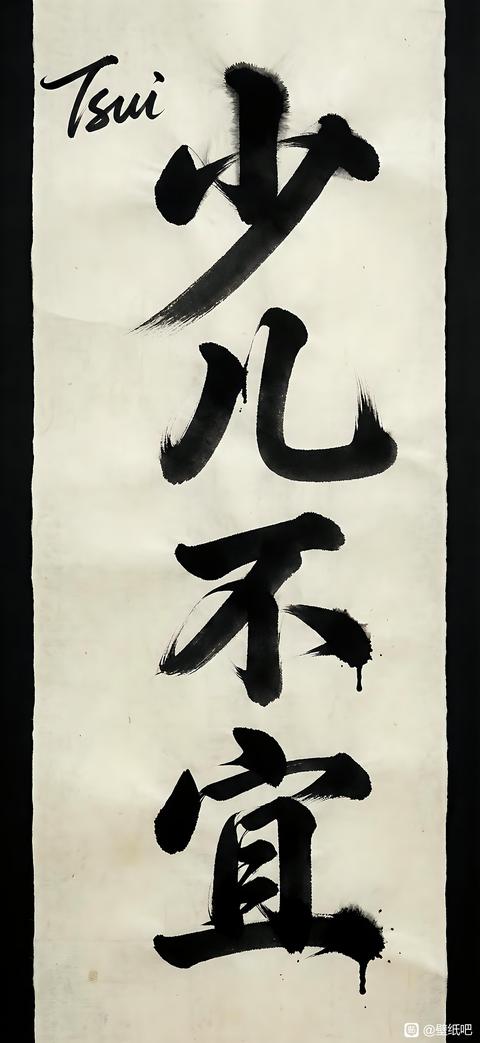 Tsui
少儿不宜
@壁纸吧